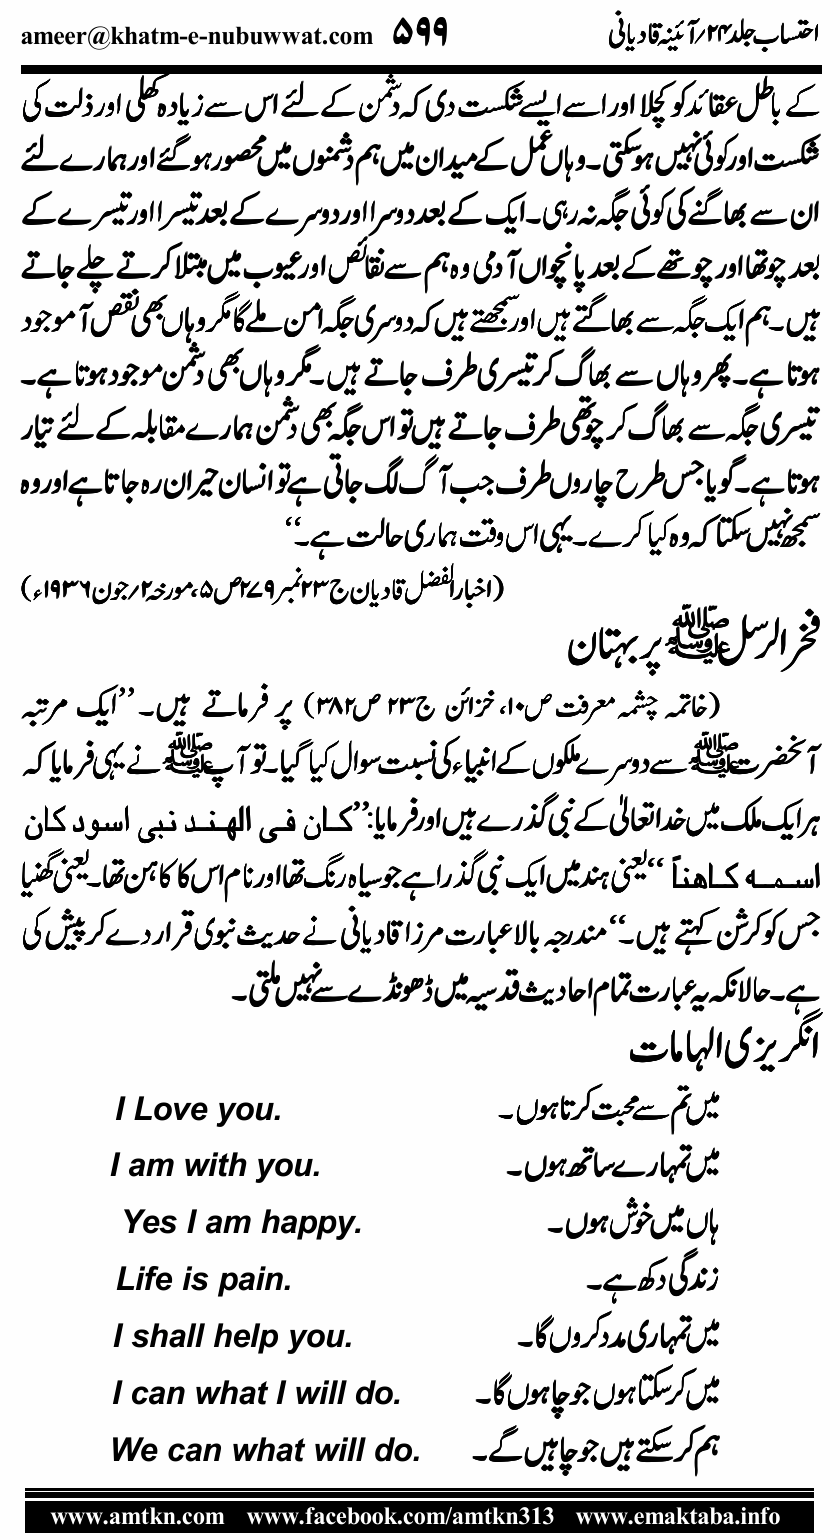 احتساب جلد ۲۴؍آئینہ قادیانی ۵۹۹ ameer@khatm-e-nubuwwat.com
کے باطل عقائد کو کچلا اور اسے ایسے شکست دی کہ دشمن کے لئے اس سے زیادہ کھلی اور ذلت کی
شکست اور کوئی نہیں ہوسکتی۔ وہاں عمل کے میدان میں ہم دشمنوں میں محصور ہوگئے اور ہمارے لئے
ان سے بھاگنے کی کوئی جگہ نہ رہی۔ ایک کے بعد دوسرا اور دوسرے کے بعد تیسرا اور تیسرے کے
بعد چوتھا اور چوتھے کے بعد پانچواں آدمی وہ ہم سے نقائص اور عیوب میں مبتلا کرتے چلے جاتے
ہیں۔ ہم ایک جگہ سے بھاگتے ہیں اور سمجھتے ہیں کہ دوسری جگہ امن ملے گا مگر وہاں بھی نقص آموجود
ہوتا ہے۔ پھر وہاں سے بھاگ کر تیسری طرف جاتے ہیں۔ مگر وہاں بھی دشمن موجود ہوتا ہے۔
تیسری جگہ سے بھاگ کر چوتھی طرف جاتے ہیں تو اس جگہ بھی دشمن ہمارے مقابلہ کے لئے تیار
ہوتا ہے۔ گویا جس طرح چاروں طرف جب آگ لگ جاتی ہے تو انسان حیران رہ جاتا ہے اور وہ
سمجھ نہیں سکتا کہ وہ کیا کرے۔ یہی اس وقت ہماری حالت ہے۔‘‘
(اخبار الفضل قادیان ج۲۳ نمبر ۲۷۹ ص۵، مورخہ ۲؍جون ۱۹۳۶ء)
فخر الرسل ﷺ پر بہتان
(خاتمہ چشمہ معرفت ص۱۰، خزائن ج۲۳ ص۳۸۲) پر فرماتے ہیں۔ ’’ایک مرتبہ
آنحضرت ﷺ سے دوسرے ملکوں کے انبیاء کی نسبت سوال کیا گیا۔ تو آپ ﷺ نے یہی فرمایا کہ
ہر ایک ملک میں خدا تعالیٰ کے نبی گذرے ہیں اور فرمایا: ’’کان فی الھند نبی اسود کان
اسمہ کاھناً‘‘ یعنی ہند میں ایک نبی گذرا ہے جو سیاہ رنگ تھا اور نام اس کا کاہن تھا۔ یعنی گھنیا
جس کو کرشن کہتے ہیں۔‘‘ مندرجہ بالا عبارت مرزا قادیانی نے حدیث نبوی قرار دے کر پیش کی
ہے۔ حالانکہ یہ عبارت تمام احادیث قدسیہ میں ڈھونڈے سے نہیں ملتی۔
انگریزی الہامات
میں تم سے محبت کرتا ہوں۔ I Love you.
میں تمہارے ساتھ ہوں۔ I am with you.
ہاں میں خوش ہوں۔ Yes I am happy.
زندگی دکھ ہے۔ Life is pain.
میں تمہاری مدد کروں گا۔ I shall help you.
میں کرسکتا ہوں جو چاہوں گا۔ I can what I will do.
ہم کرسکتے ہیں جو چاہیں گے۔ We can what will do.
www.amtkn.com www.facebook.com/amtkn313 www.emaktaba.info